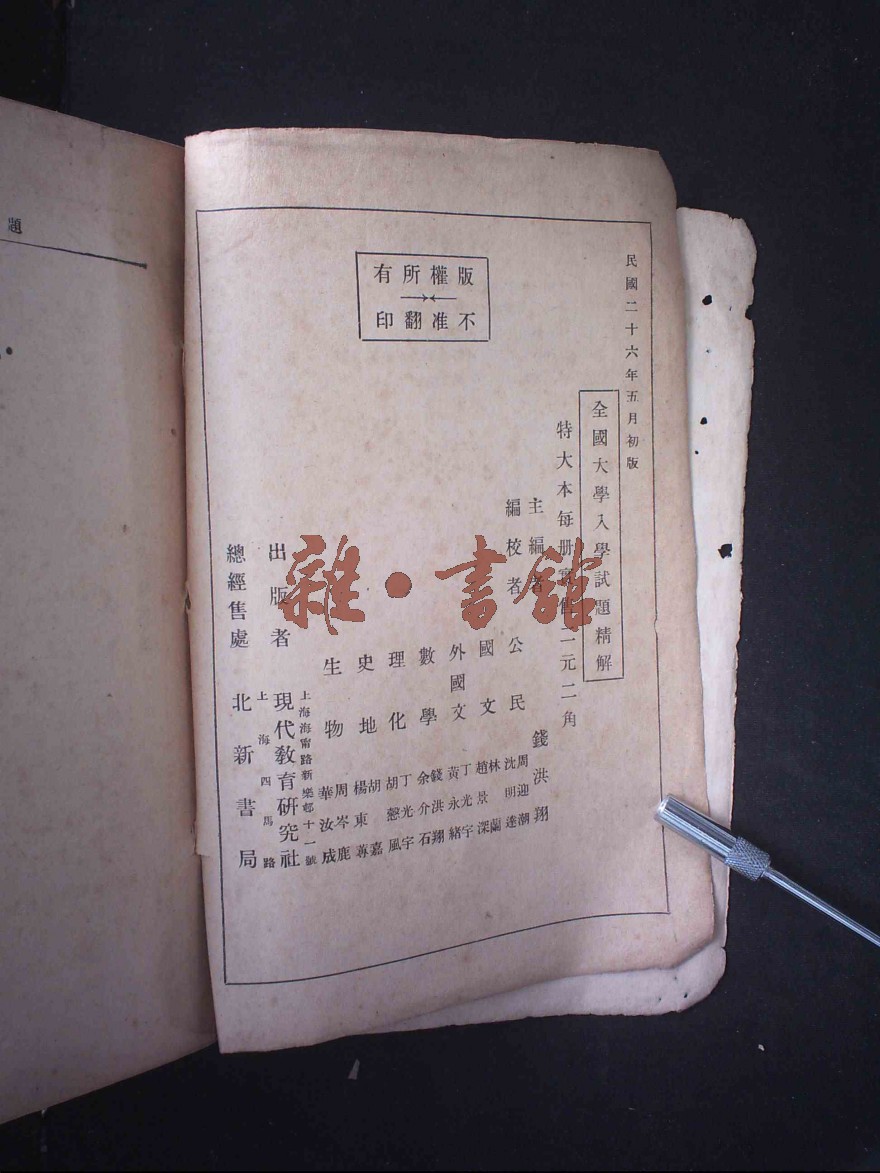 版權所有
不准翻印
民國二十六年五月初版
全國大學入學試題精解
特大本每册實售二元二角
主編者 錢洪翔
編校者
公民 周迎潮 沈明達
國文 林蘭 趙景深
外國文 丁光宇 黃永緒
數學 錢洪翔 余介石
理化 丁光宇 胡愨風
史地 胡嘉 楊東蓴
生物 周岑鹿 華汝成
出版者 現代教育研究社
上海海甯路新樂邨十一號
總經售處 北新書局
上海四馬路
題
雜·書館